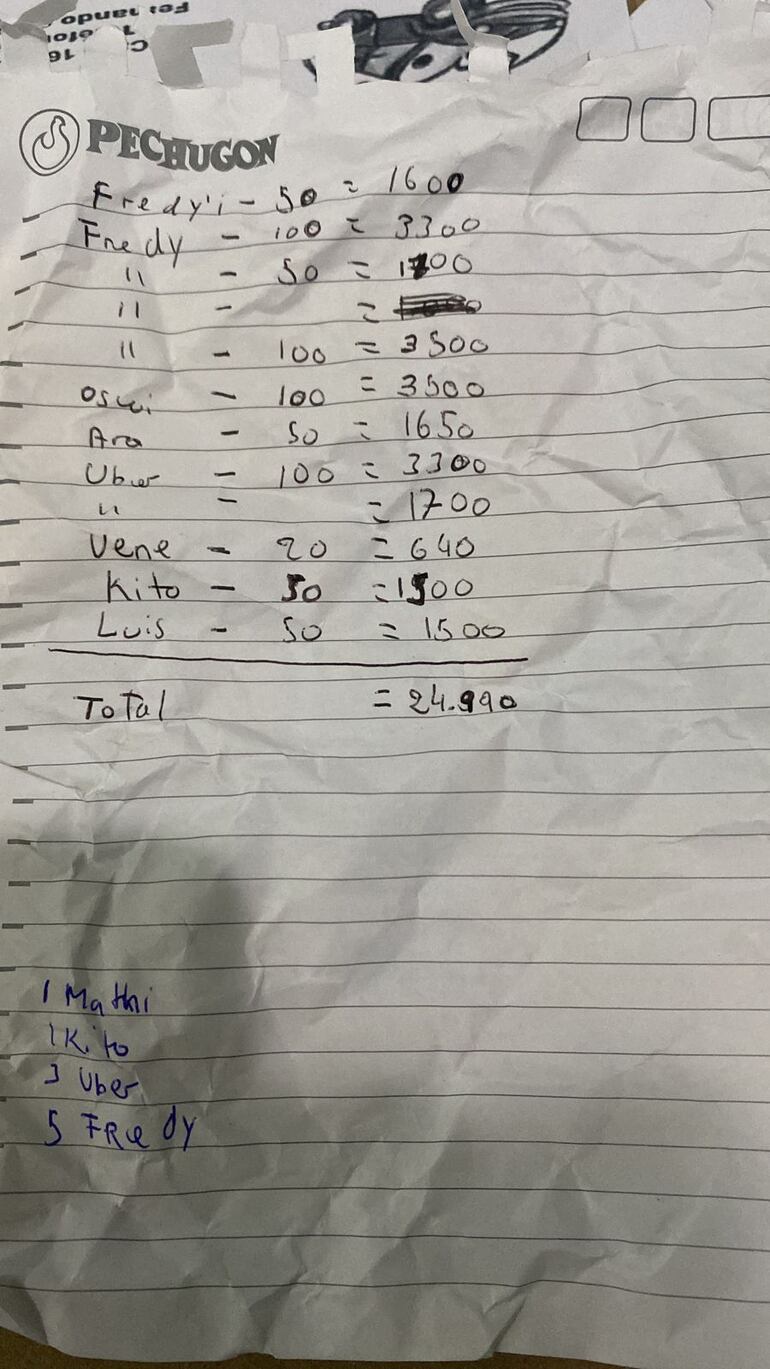 PECHUGON
Fredy'i - 50 = 1600
Fredy - 100 = 3300
" - 50 = 1700
" - =
" - 100 = 3500
Oswi - 100 = 3500
Ara - 50 = 1650
Uber - 100 = 3300
" - = 1700
Vene - 20 = 640
Kito - 50 = 1500
Luis - 50 = 1500
Total = 24.990
1 Mathi
1 Kito
3 Uber
5 FRedy